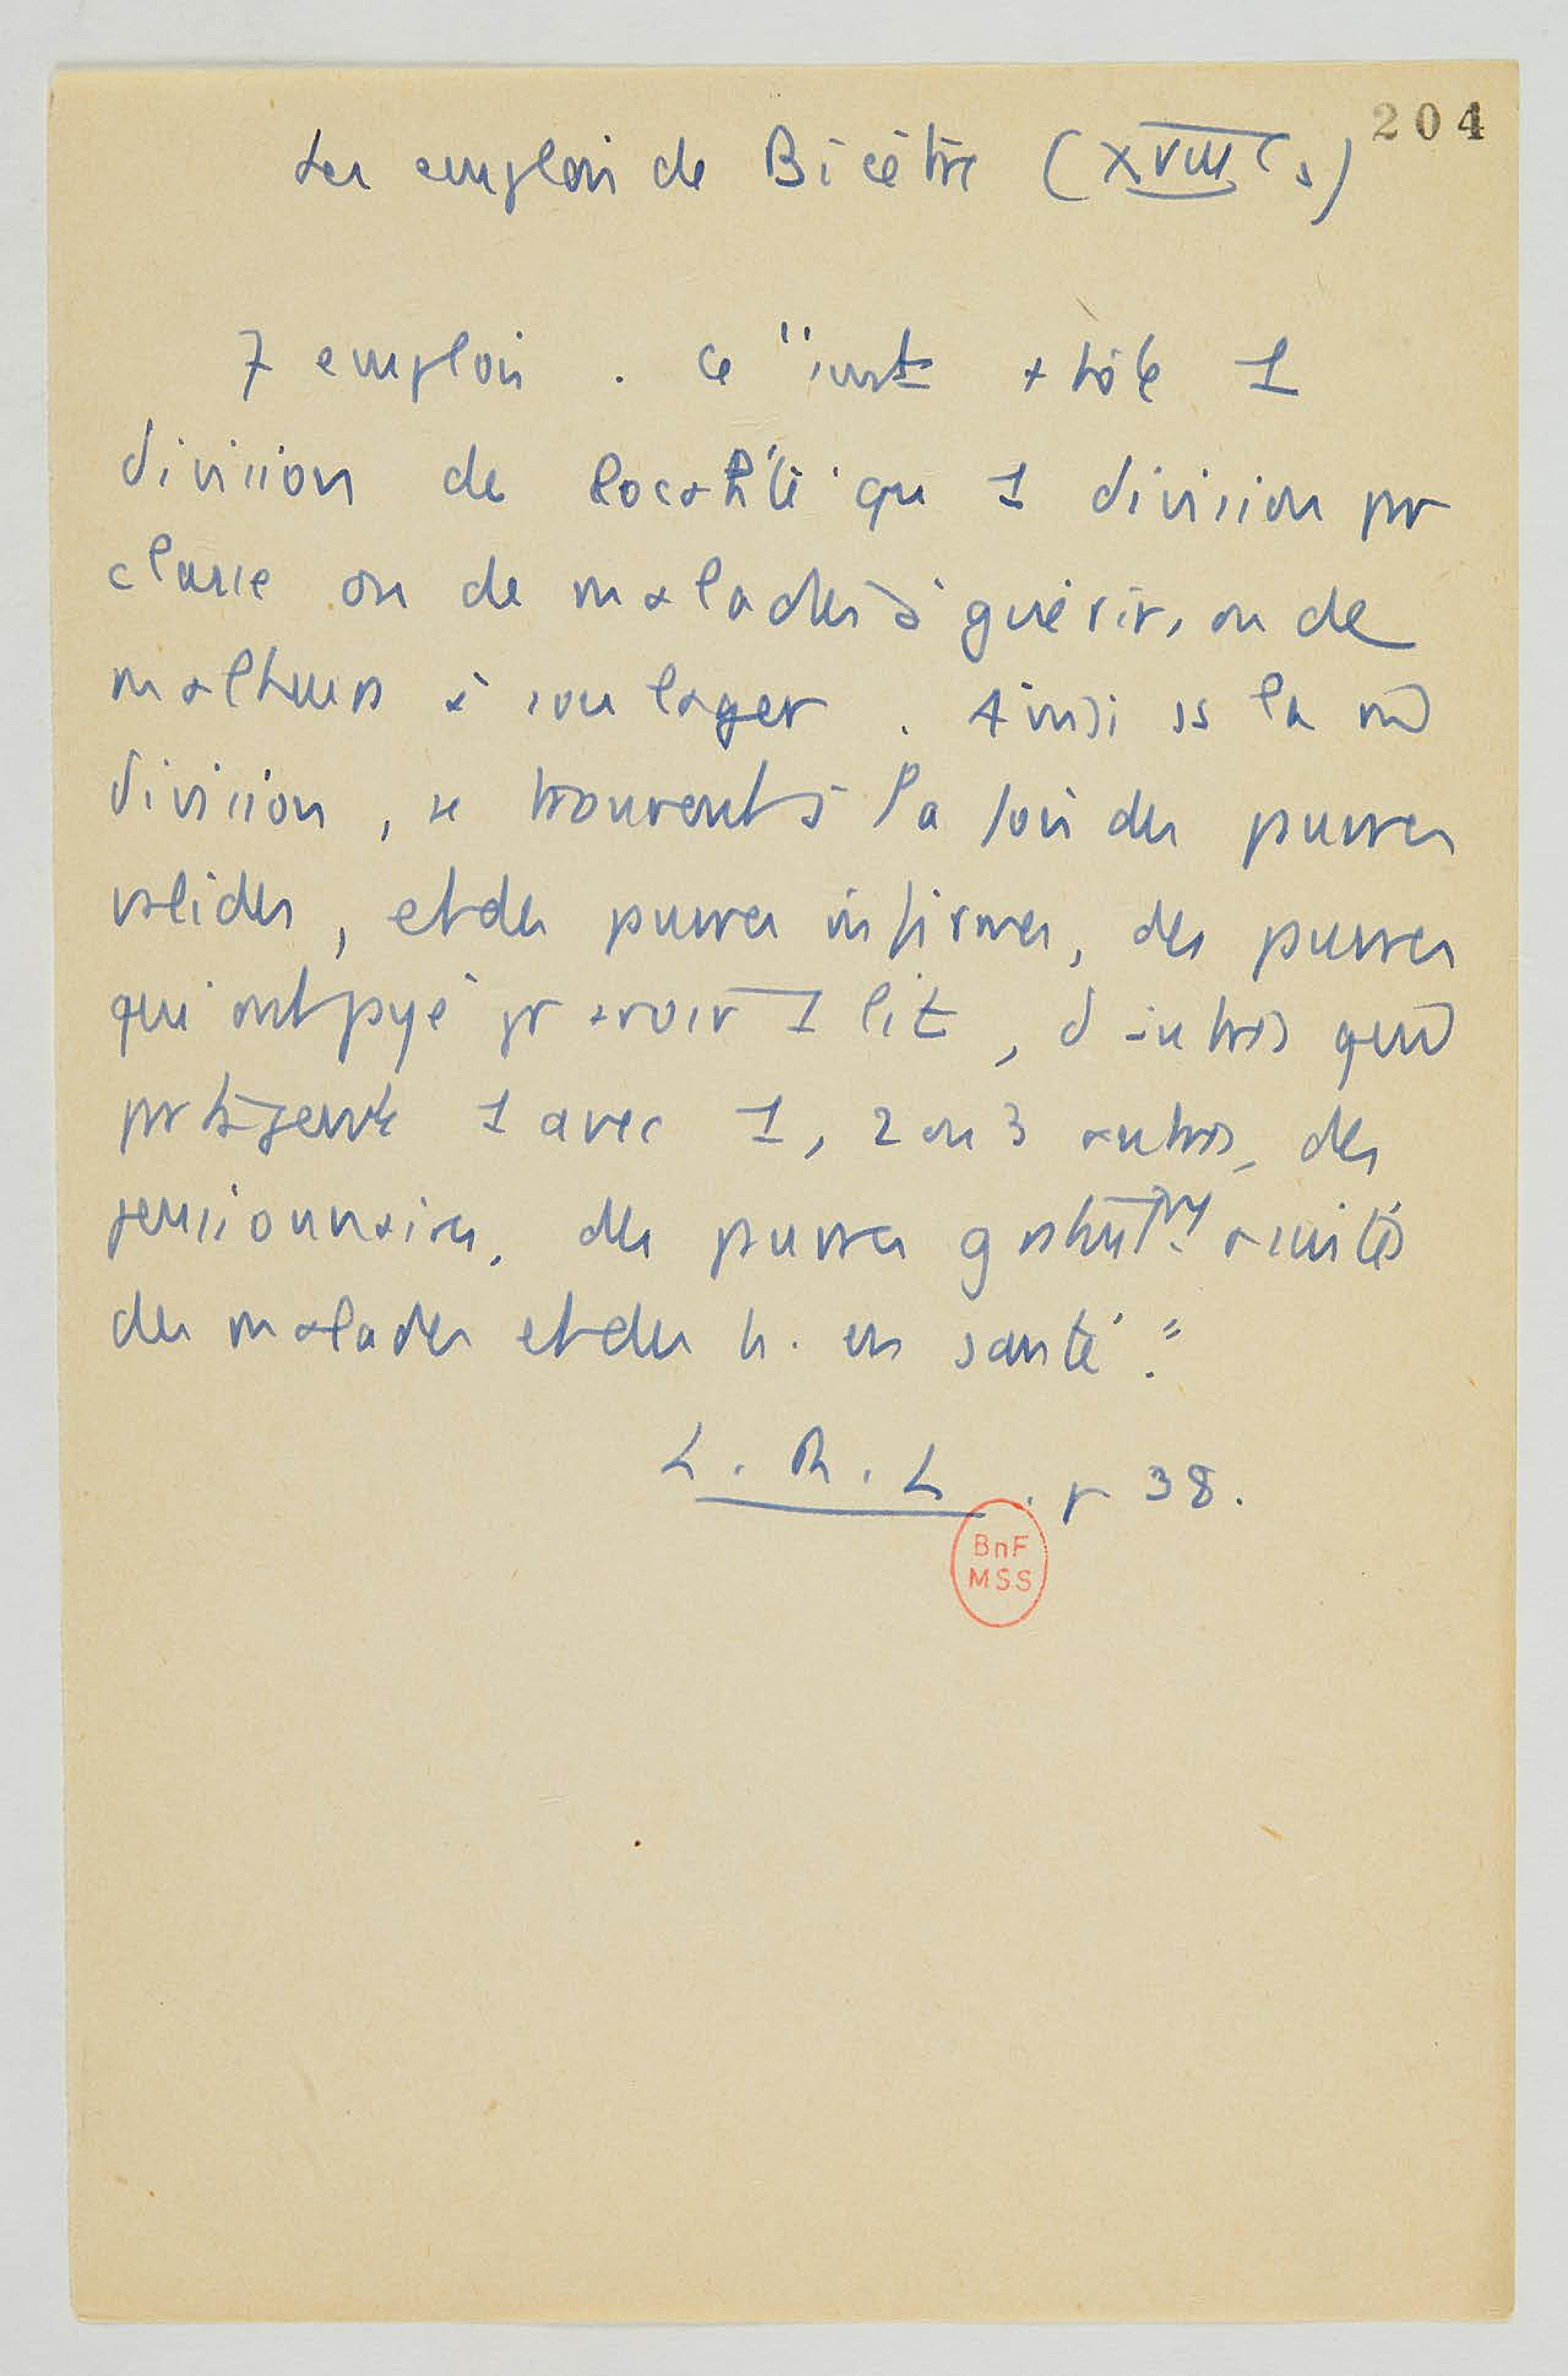 204
Les emplois de Bicêtre (XVIIIe s)
7 emplois. Ce "sont + tôt 1
division de localité qu 1 division pr
classe ou de malades à guérir, ou de
malheurx à soulager. Ainsi ds la m̄
division, se trouvent à la fois des pauvres
valides, et des pauvres infirmes, des pauvres
qui ont payé pr avoir 1 lit, d autres qui
partagent 1 avec 1, 2 ou 3 autres, des
pensionnaires, des pauvres gratuitmt assistés
des malades et des h. en santé."
L. R. L. p 38.
BnF
MSS